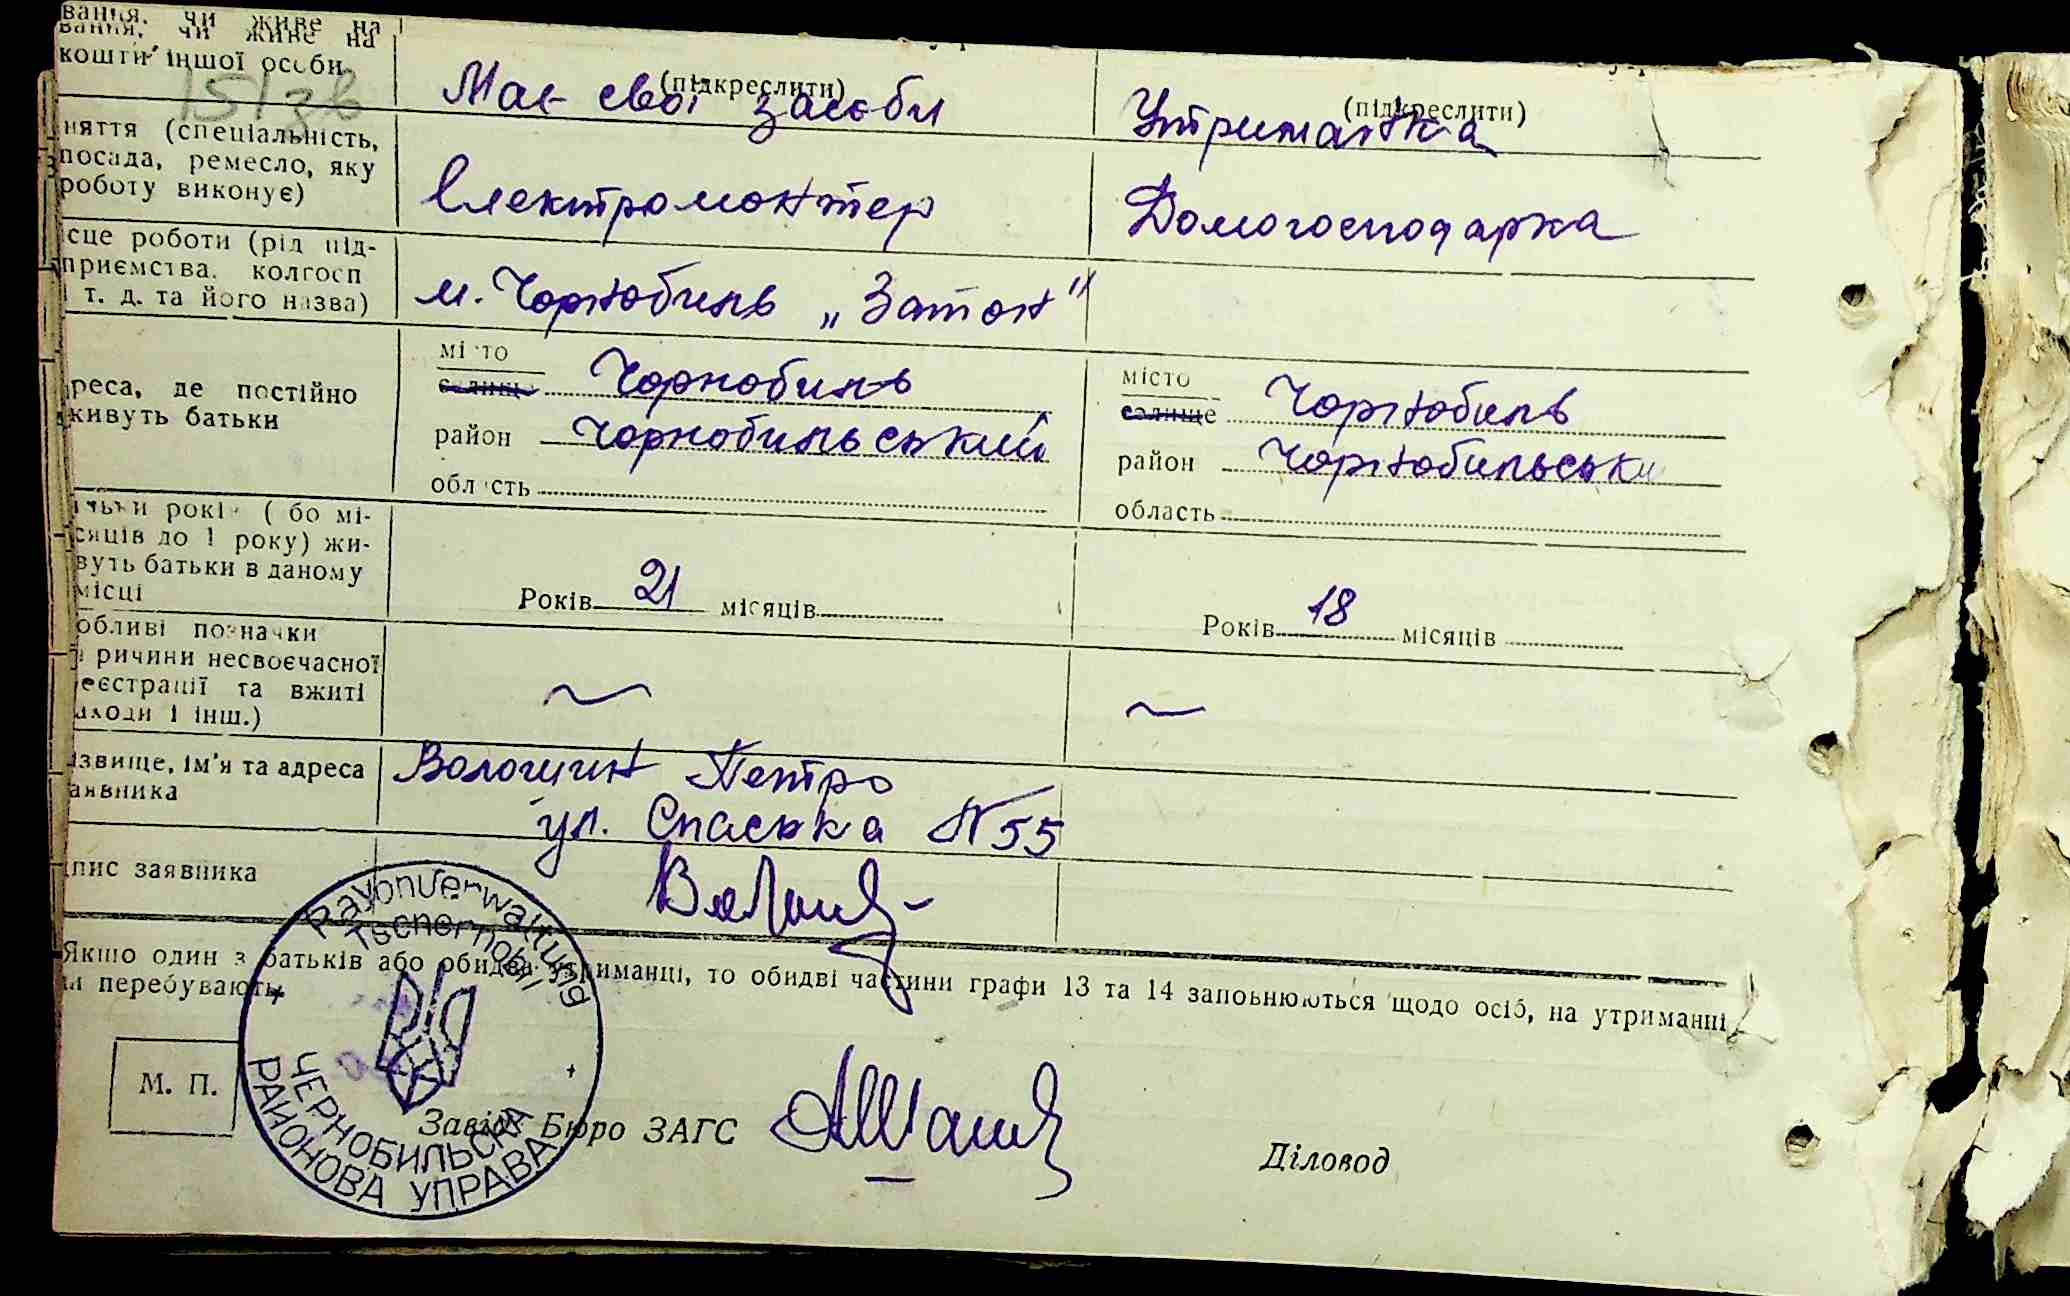 вання, чи живе на
вання, чи живе на
кошти іншої особи
151 зв
(підкреслити)
Має свої засоби
(підкреслити)
Утриманка
няття (спеціальність,
посада, ремесло, яку
роботу виконує)
Електромонтер
Домогосподарка
сце роботи (рід під-
приємства, колгосп
і т. д. та його назва)
м. Чорнобиль „Затон"
реса, де постійно
живуть батьки
місто
селище Чорнобиль
район Чорнобильський
область
місто
селище Чорнобиль
район Чорнобильськи
область
льки років ( бо мі-
сяців до 1 року) жи-
вуть батьки в даному
місці
Років 21 місяців
Років 18 місяців
обливі позначки
ричини несвоєчасної
еєстрації та вжиті
аходи і інш.)
ізвище, ім'я та адреса
аявника
Волошин Петро
ул. Спаська № 55
пис заявника
Якщо один з батьків або обидва утриманці, то обидві частини графи 13 та 14 заповнюються щодо осіб, на утриманні
перебувають
М. П.
Rayonverwaltung
Tschernobil
ЧЕРНОБИЛЬСКА
РАЙОНОВА УПРАВА
Завід. Бюро ЗАГС
Діловод